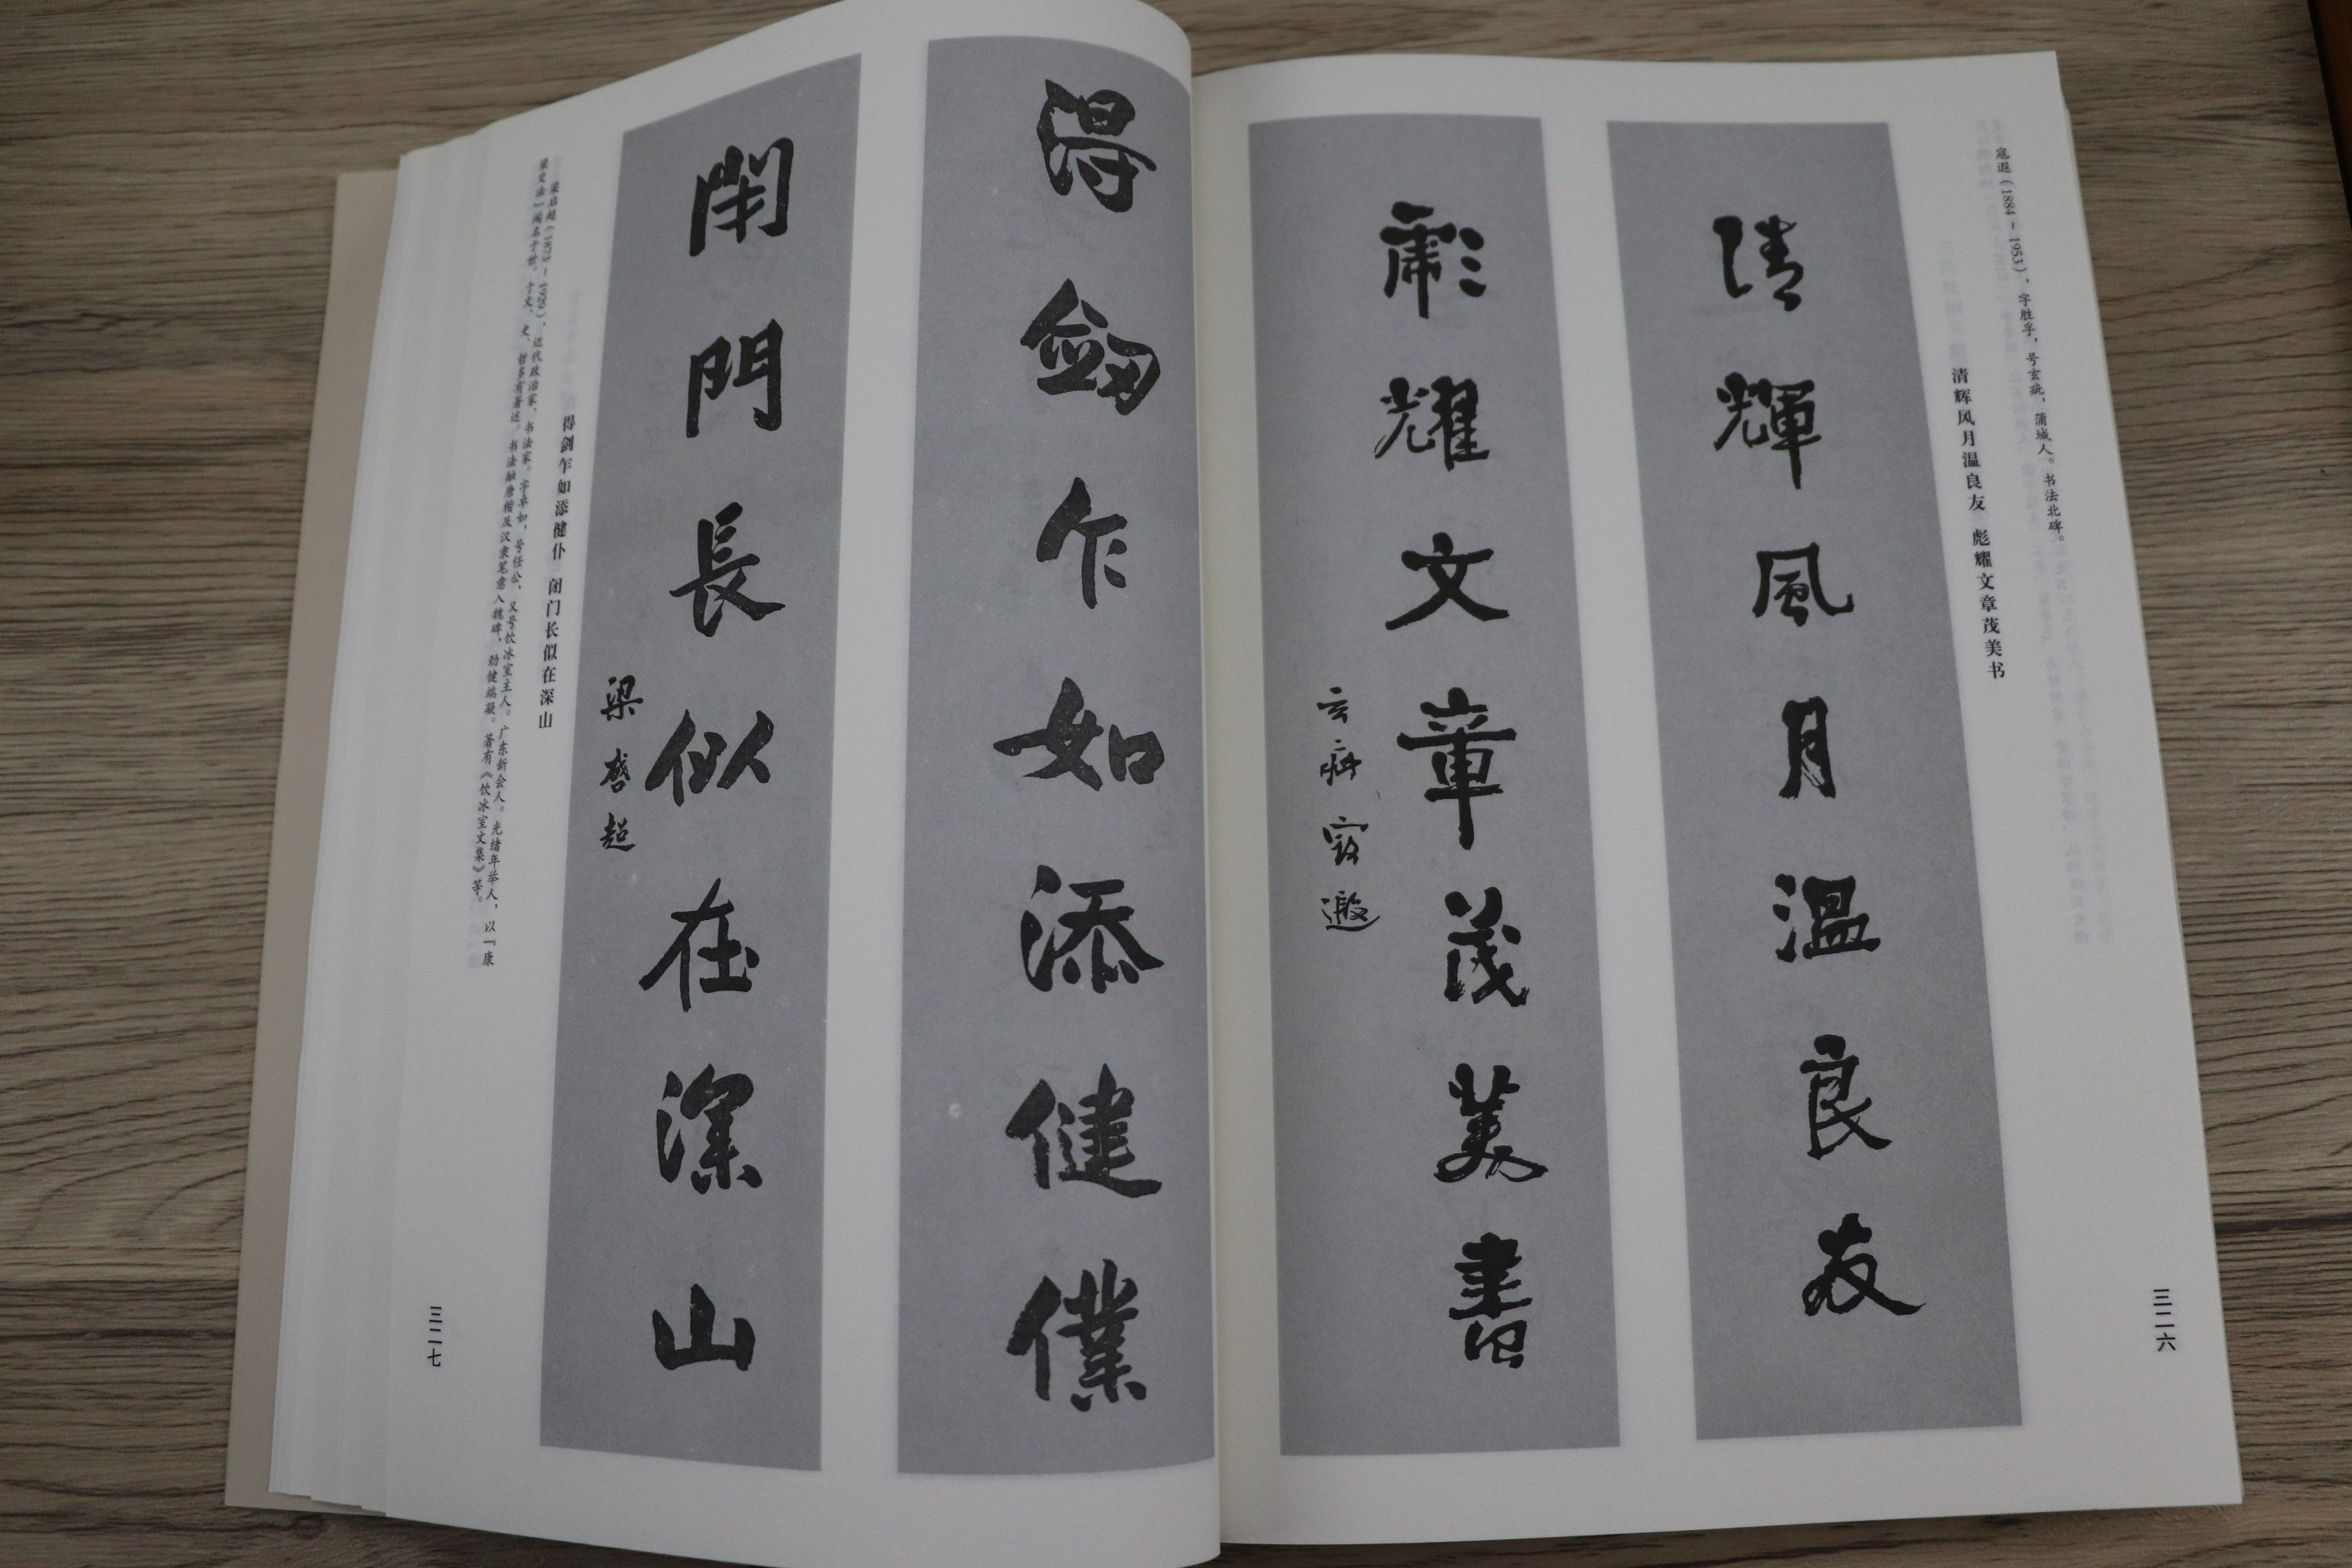 寇遐（1884～1953），字胜孚，号玄疵，蒲城人。书法北碑。
清辉风月温良友　彪耀文章茂美书
清輝風月溫良友
彪耀文章茂美書
玄疵寇遐
三二六
得劒乍如添健僕
閉門長似在深山
梁啓超
得剑乍如添健仆　闭门长似在深山
梁启超（1873～1929），近代政治家、书法家。字卓如，号任公，又号饮冰室主人。广东新会人。光绪年举人，以「康
梁变法」闻名于世。于文、史、哲多有著述。书法融唐楷及汉隶笔意入魏碑，劲健端凝。著有《饮冰室文集》等。
三二七